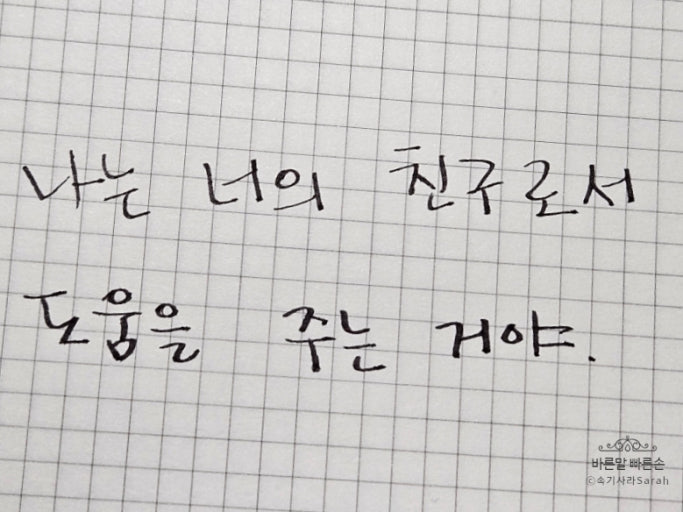 나는 너의 친구로서
도움을 주는 거야.
바른말 빠른손
©속기사라Sarah